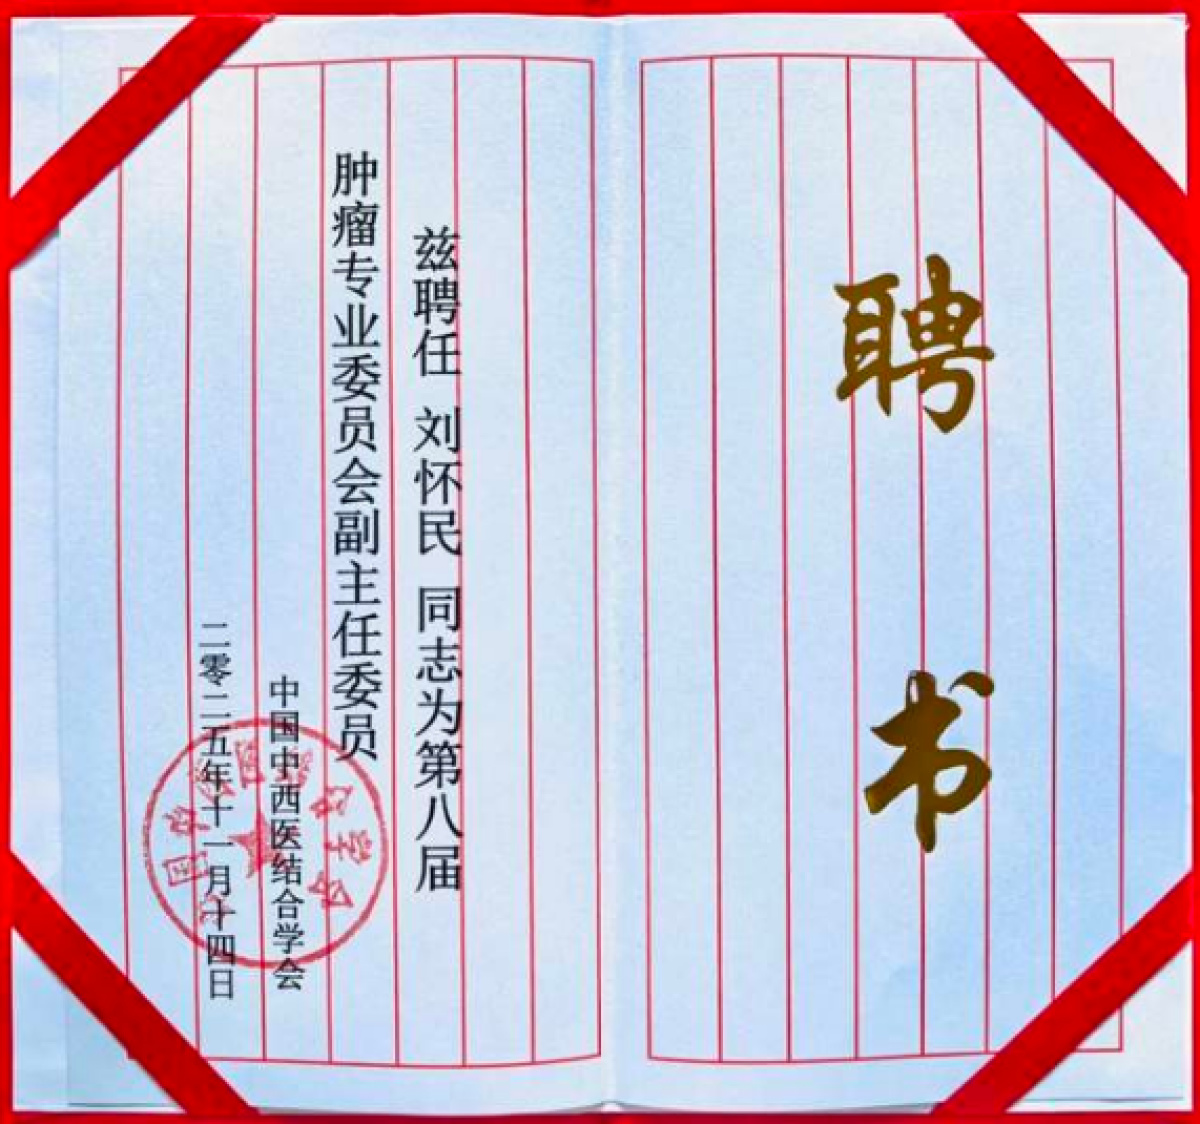 聘书
兹聘任 刘怀民 同志为第八届
肿瘤专业委员会副主任委员
中国中西医结合学会
二零二五年十一月十四日